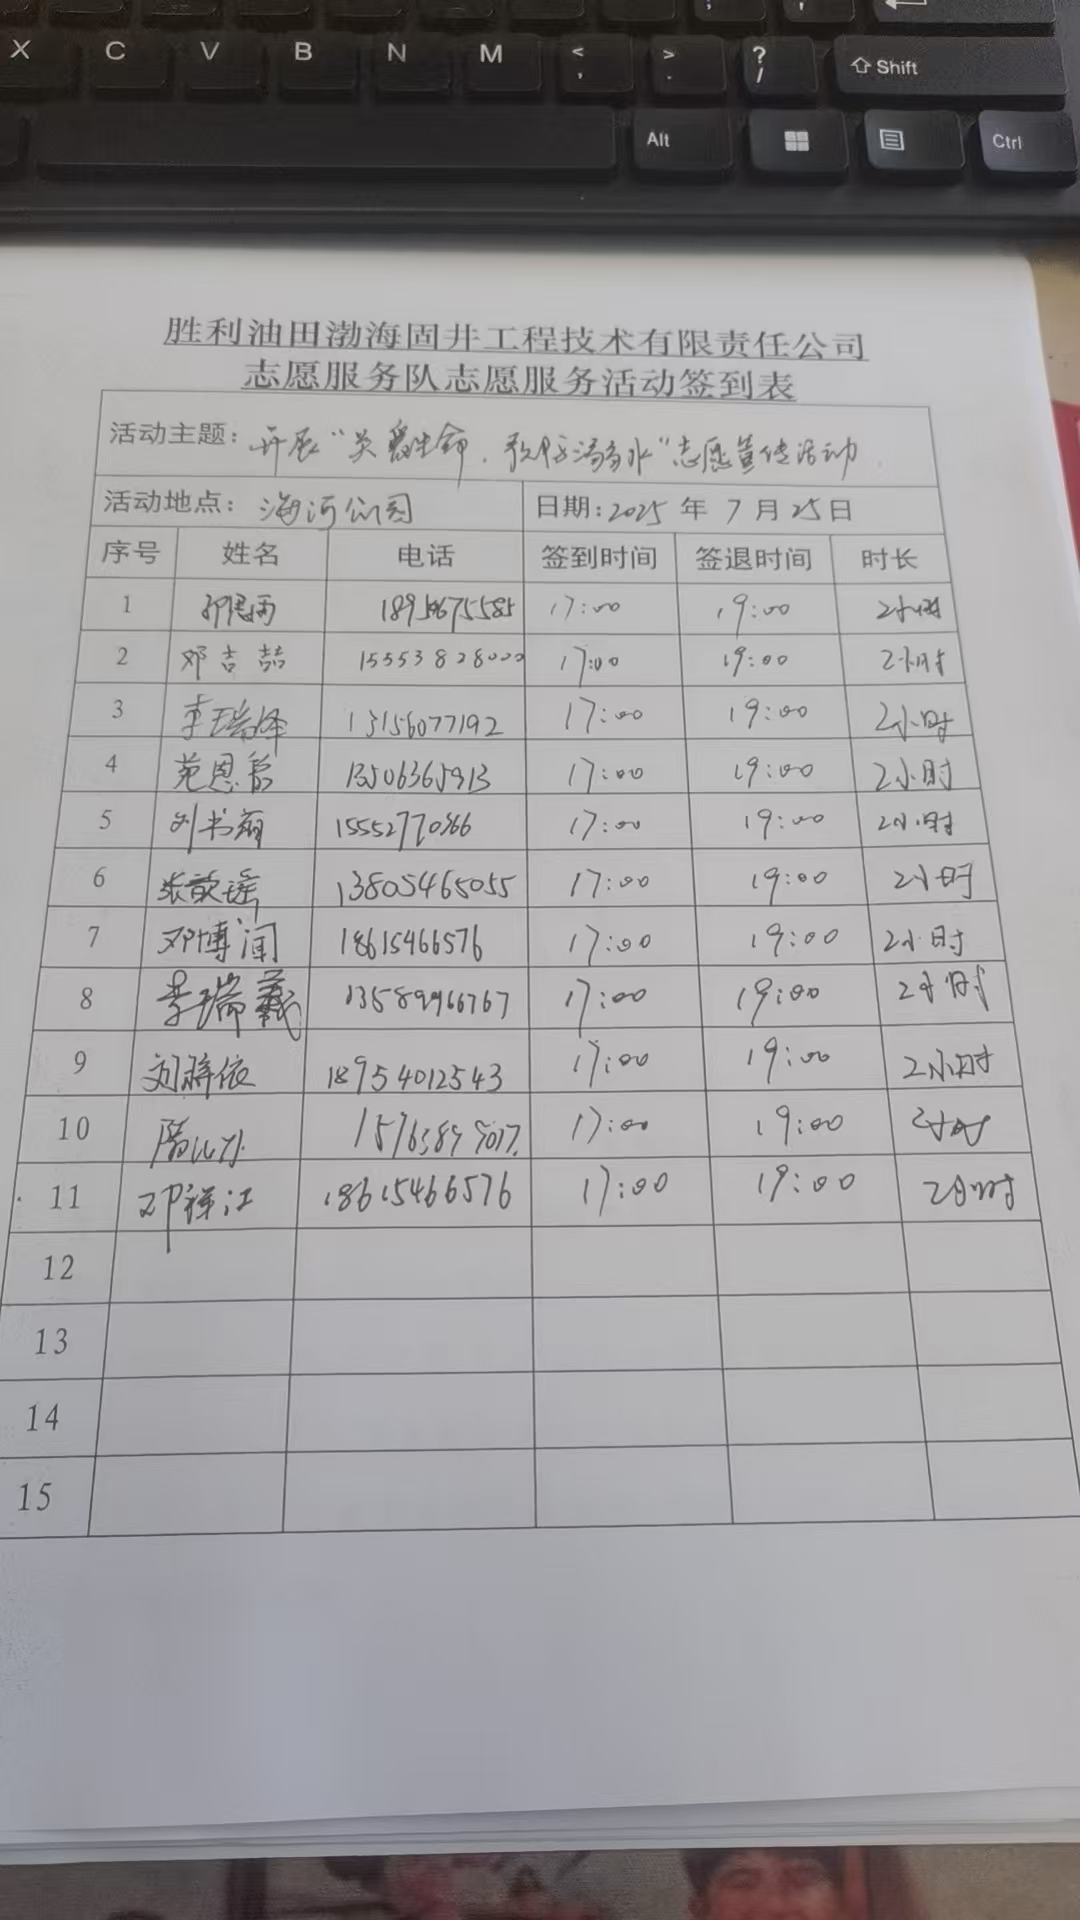 X C V B N M < , > . ? / Shift
Alt Ctrl
胜利油田渤海固井工程技术有限责任公司
志愿服务队志愿服务活动签到表
活动主题：开展“关爱生命，预防溺水”志愿宣传活动
活动地点：海河公园 日期：2025 年 7 月 25 日
序号 姓名 电话 签到时间 签退时间 时长
1 17:00 19:00 2小时
2 邓吉喆 15553828020 17:00 19:00 2小时
3 李瑞泽 13156077192 17:00 19:00 2小时
4 苑恩 13506365913 17:00 19:00 2小时
5 刘书 17:00 19:00 2小时
6 张歆瑶 13805465055 17:00 19:00 2小时
7 邓博闻 18615466576 17:00 19:00 2小时
8 李瑞羲 13589966767 17:00 19:00 2小时
9 刘 依 18954012543 17:00 19:00 2小时
10 17:00 19:00 2小时
11 邓 江 18615466576 17:00 19:00 2小时
12
13
14
15